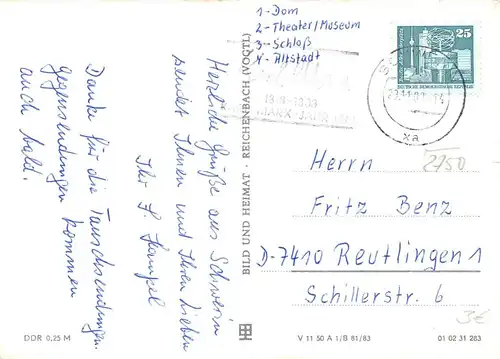 1-Dom
2-Theater/Museum
3-Schloß
4-Altstadt
Herzliche Grüße aus Schwerin
sendet Ihnen und Ihren Lieben
Ihr
Danke für die Tauschsendungen.
Gegensendungen kommen
auch bald.
BILD UND HEIMAT · REICHENBACH (VOGTL)
25
DEUTSCHE DEMOKRATISCHE REPUBLIK
xa
2750
Herrn
Fritz Benz
D-7410 Reutlingen 1
Schillerstr. 6
3€
DDR 0,25 M
V 11 50 A 1/B 81/83
01 02 31 283